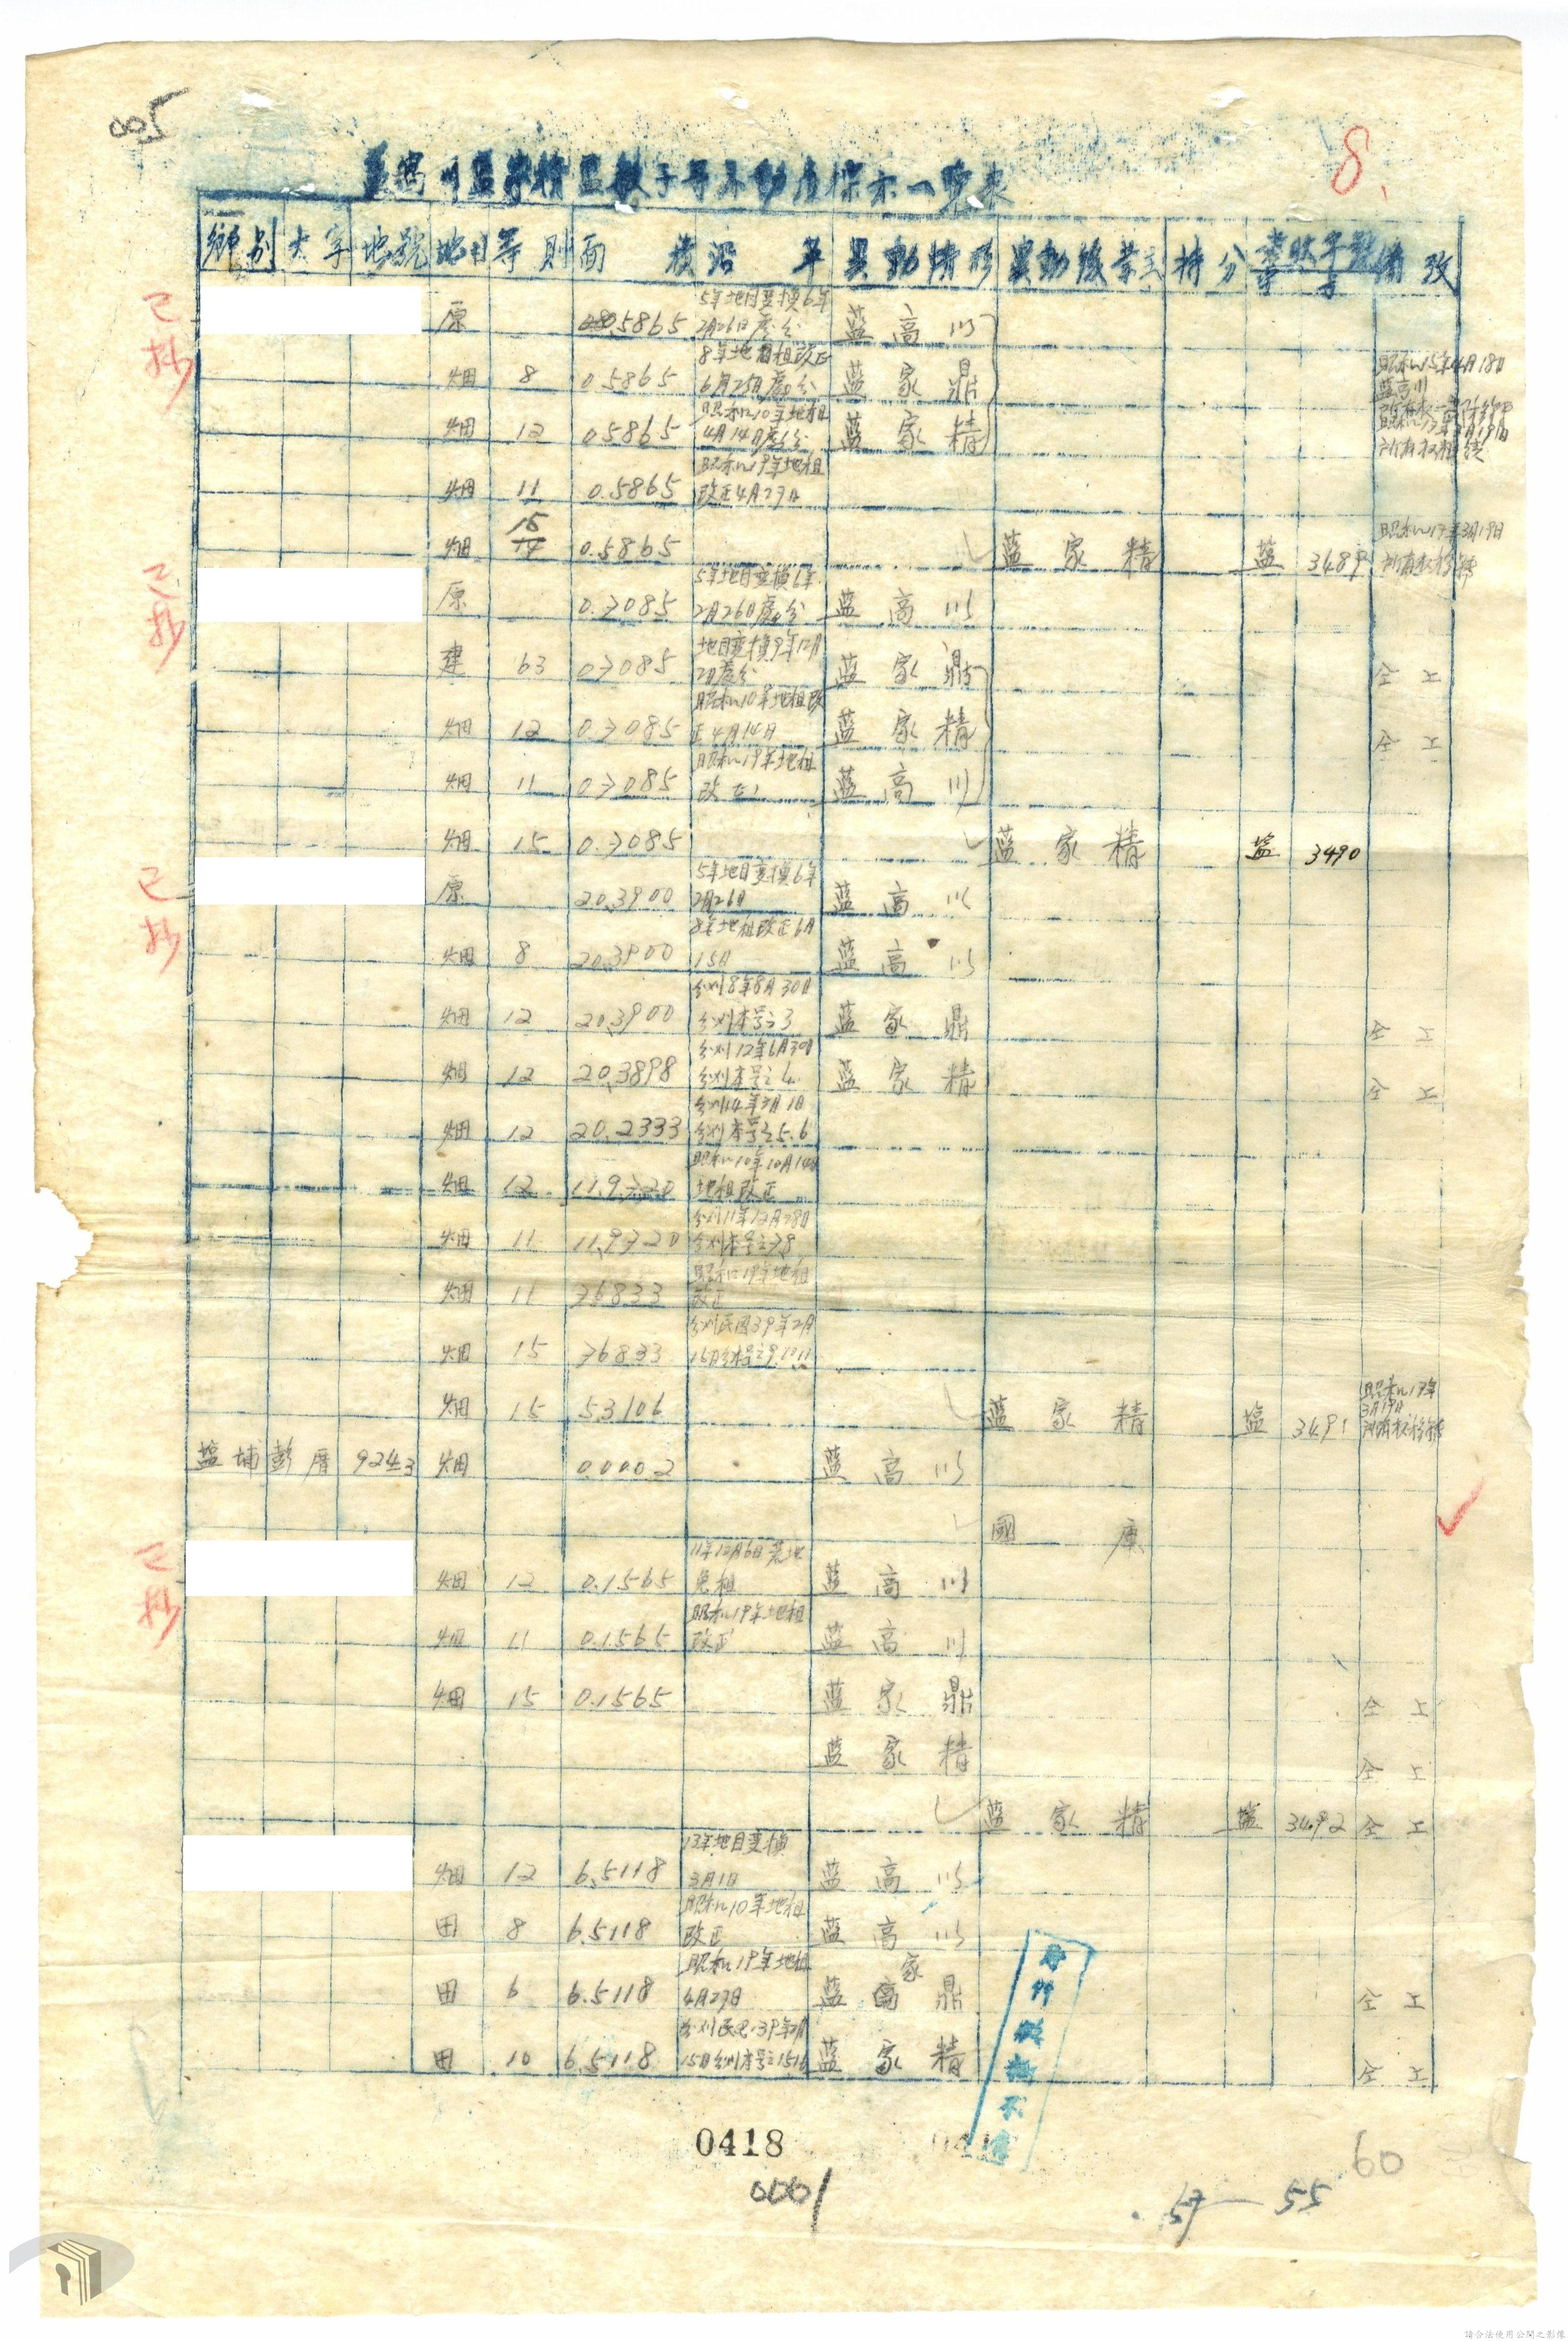 805
8.
藍高川藍家精藍敏子等不動產標示一覽表
鄉別 大字 地號 地目 等則 面積 沿革 異動情形 異動後業主 持分 備攷
已抄
原 0.5865 5年地目變換6年2月26日處分 藍高川
畑 8 0.5865 8年地租改正6月25日處分 藍家鼎 昭和15年4月18日藍高川
畑 12 0.5865 昭和10年地租4月14日處分 藍家精
畑 11 0.5865 昭和19年地租改正4月29日
畑 15 0.5865 藍家精 藍 3489 昭和19年3月19日所有權移轉
已抄
原 0.7085 5年地目變換6年2月26日處分 藍高川
建 63 0.7085 地目變換9年12月2日處分 藍家鼎 仝工
畑 12 0.7085 昭和10年地租改正4月14日 藍家精 仝工
畑 11 0.7085 昭和19年地租改正 藍高川
畑 15 0.7085 藍家精 藍 3490
已抄
原 20.3900 5年地目變換6年2月26日 藍高川
畑 8 20.3900 8年地租改正6月15日 藍高川
畑 12 20.3900 分割8年8月30日分割本号之3 藍家鼎 仝工
畑 12 20.3898 分割12年6月30日分割本号之4 藍家精 仝工
畑 12 20.2333 分割14年3月1日分割本号之5.6
畑 12 11.9720 昭和10年10月14日地租改正
畑 11 11.9720 分割11年12月28日分割本号之7.8
畑 11 7.6833 昭和19年地租改正
畑 15 7.6833 分割民国39年2月15日分本号之9.10.11
畑 15 5.3106 藍家精 塩 3491 昭和19年3月19日所有权移轉
塩埔 彭厝 924-3 畑 0.0002 藍高川
國庫
已抄
畑 12 0.1565 11年12月6日荒地免租 藍高川
畑 11 0.1565 昭和19年地租改正 藍高川
畑 15 0.1565 藍家鼎 仝工
藍家精 仝工
藍家精 塩 3492 仝工
畑 12 6.5118 13年地目變換3月1日 藍高川
田 8 6.5118 昭和10年地租改正 藍高川
田 6 6.5118 昭和19年地租4月29日 藍家鼎 仝工
田 10 6.5118 分割民国39年2月15日分割本号之15.16 藍家精 仝工
0418
0001
60
57—55
請合法使用公開之影像